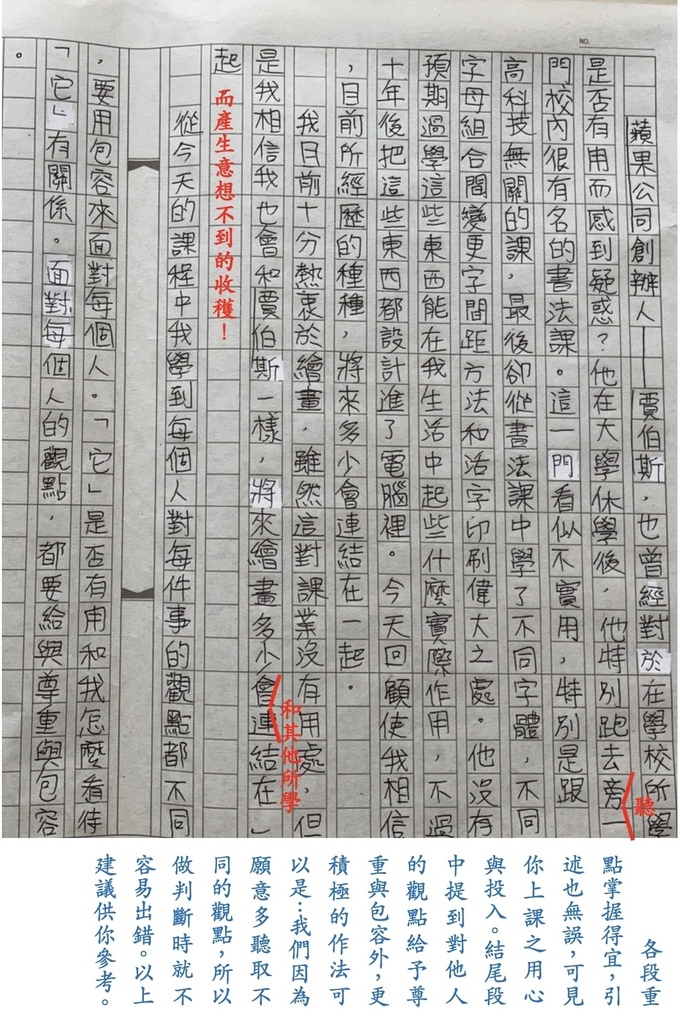 NO.
蘋果公司創辦人——賈伯斯，也曾經對於在學校所學
是否有用而感到疑惑？他在大學休學後，他特別跑去旁一
聽
門校內很有名的書法課。這一門看似不實用，特別是跟
高科技無關的課，最後卻從書法課中學了不同字體，不同
字母組合間變更字間距方法和活字印刷偉大之處。他沒有
預期過學這些東西能在我生活中起些什麼實際作用，不過
十年後把這些東西都設計進了電腦裡。今天回顧使我相信
，目前所經歷的種種，將來多少會連結在一起。
我目前十分熱衷於繪畫，雖然這對課業沒有用處，但
是我相信我也會和賈伯斯一樣，將來繪畫多少會連結在一
和其他所學
起
而產生意想不到的收穫！
從今天的課程中我學到每個人對每件事的觀點都不同
，要用包容來面對每個人。「它」是否有用和我怎麼看待
「它」有關係。面對每個人的觀點，都要給與尊重與包容
。
各段重
點掌握得宜，引
述也無誤，可見
你上課之用心
與投入。結尾段
中提到對他人
的觀點給予尊
重與包容外，更
積極的作法可
以是：我們因為
願意多聽取不
同的觀點，所以
做判斷時就不
容易出錯。以上
建議供你參考。